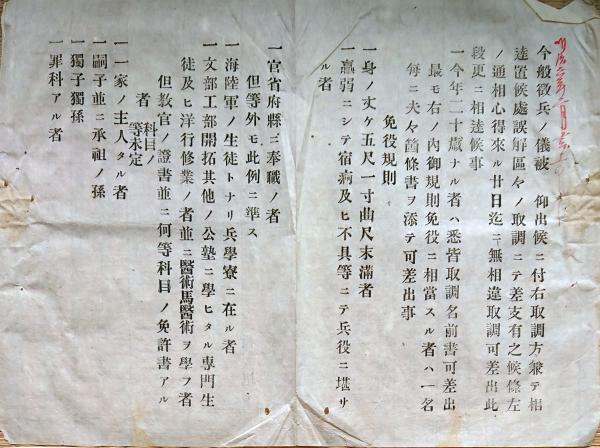 今般徴兵ノ儀被 仰出候ニ付右取調方兼テ相
達置候處誤解區々ノ取調ニテ差支有之候條左
ノ通相心得來ル廿日迄ニ無相違取調可差出此
段更ニ相達候事
一今年二十歳ナル者ハ悉皆取調名前書可差出
最モ右ノ内御規則免役ニ相當スル者ハ一名
毎ニ夫々箇條書ヲ添テ可差出事
免役規則
一身ノ丈ケ五尺一寸曲尺未滿者
一羸弱ニシテ宿病及ヒ不具等ニテ兵役ニ堪サ
ル者
一官省府縣ニ奉職ノ者
但等外モ此例ニ準ス
一海陸軍ノ生徒トナリ兵學寮ニ在ル者
一文部工部開拓其他ノ公塾ニ學ヒタル專門生
徒及ヒ洋行修業ノ者並ニ醫術馬醫術ヲ學フ者
但敎官ノ證書並ニ何等科目ノ免許書アル
者 科目ノ
等未定
一一家ノ主人タル者
一嗣子並ニ承祖ノ孫
一獨子獨孫
一罪科アル者